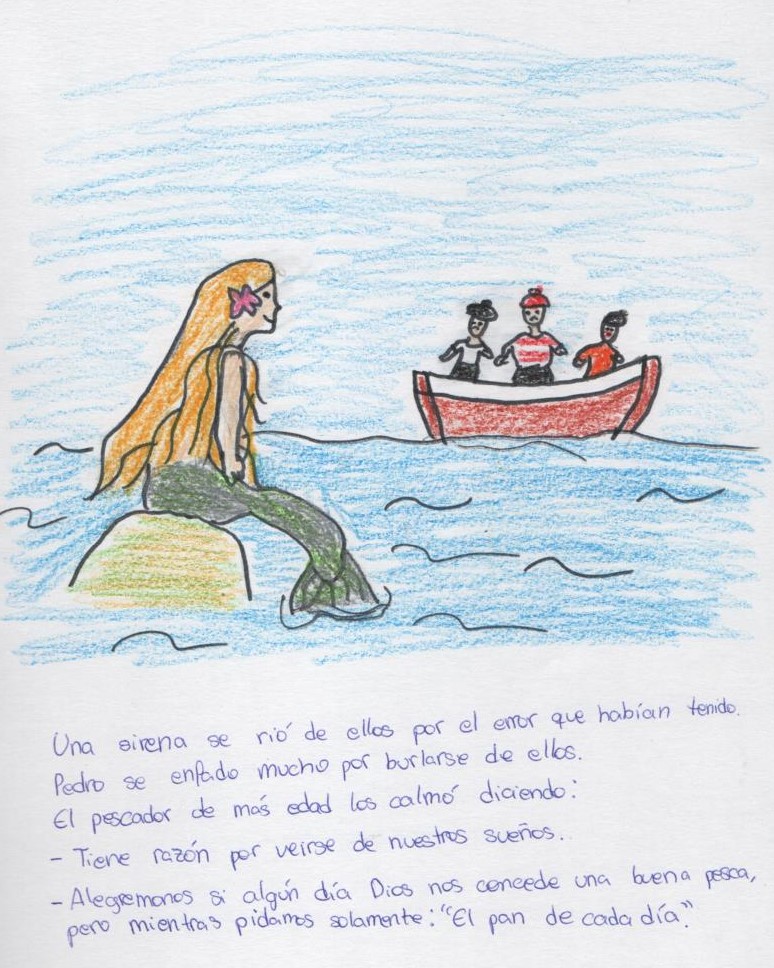 Una sirena se rió de ellos por el error que habían tenido.
Pedro se enfado mucho por burlarse de ellos.
El pescador de más edad los calmó diciendo:
- Tiene razón por veirse de nuestros sueños..
- Alegremonos si algún día Dios nos concede una buena pesca,
pero mientras pidamos solamente: "El pan de cada día."